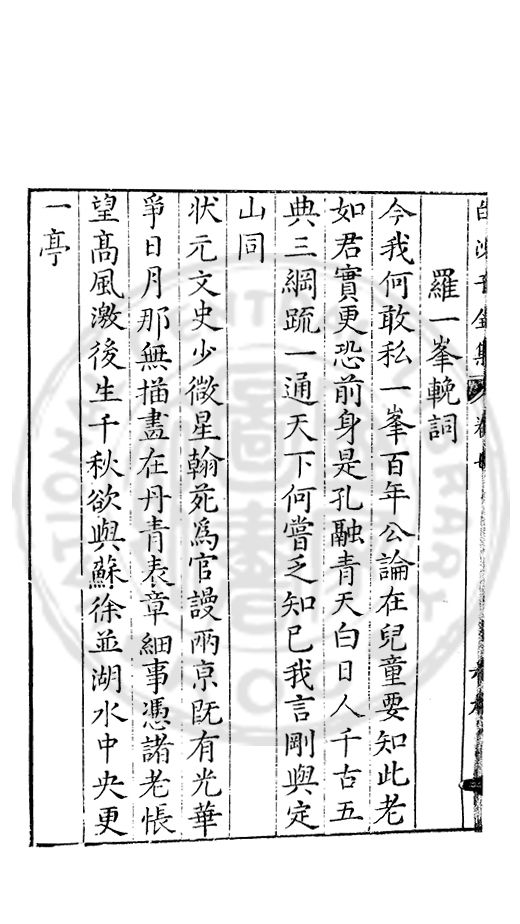 羅一峯輓詞
今我何敢私一峯百年公論在兒童要知此老
如君實更恐前身是孔融青天白日人千古五
典三綱疏一通天下何嘗乏知已我言剛與定
山同
狀元文史少微星翰苑爲官謾兩京既有光華
爭日月那無描畫在丹青表章細事憑諸老悵
望高風激後生千秋欲與蘇徐並湖水中央更
一亭